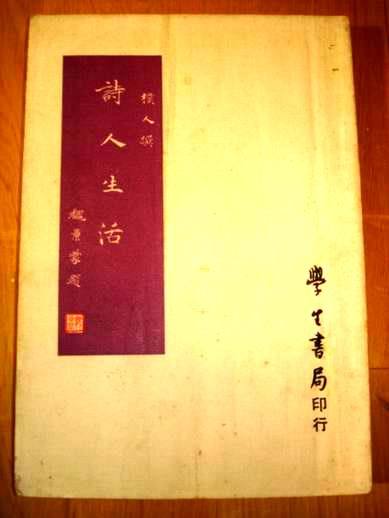 學生書局印行
樸人撰
詩人生活
魏景蒙題